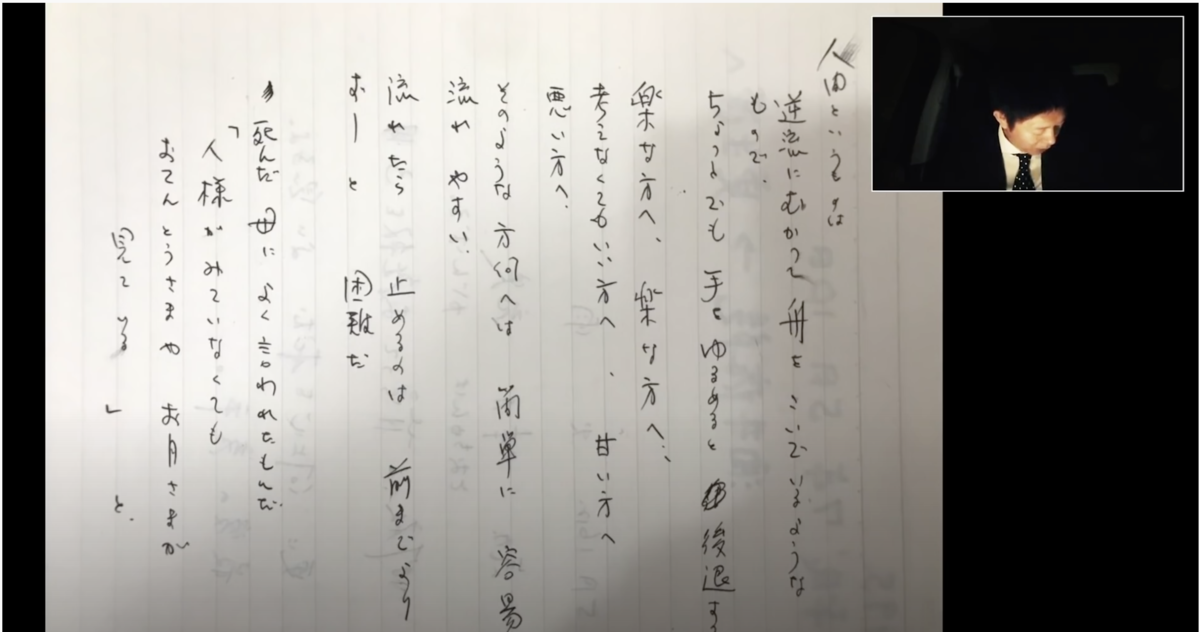 人間というものは
逆流にむかって舟をこいでいるような
もので、
ちょっとでも手をゆるめると後退す
楽な方へ、楽な方へ、
考えなくてもいい方へ、甘い方へ
悪い方へ、
そのような方何へは簡単に容易
流れやすい、
流れたら止めるのは前までより
むーと困難だ
死んだ母によく言われたもんだ
「人様がみていなくても
おてんとうさまやお月さまが
見ている」と、